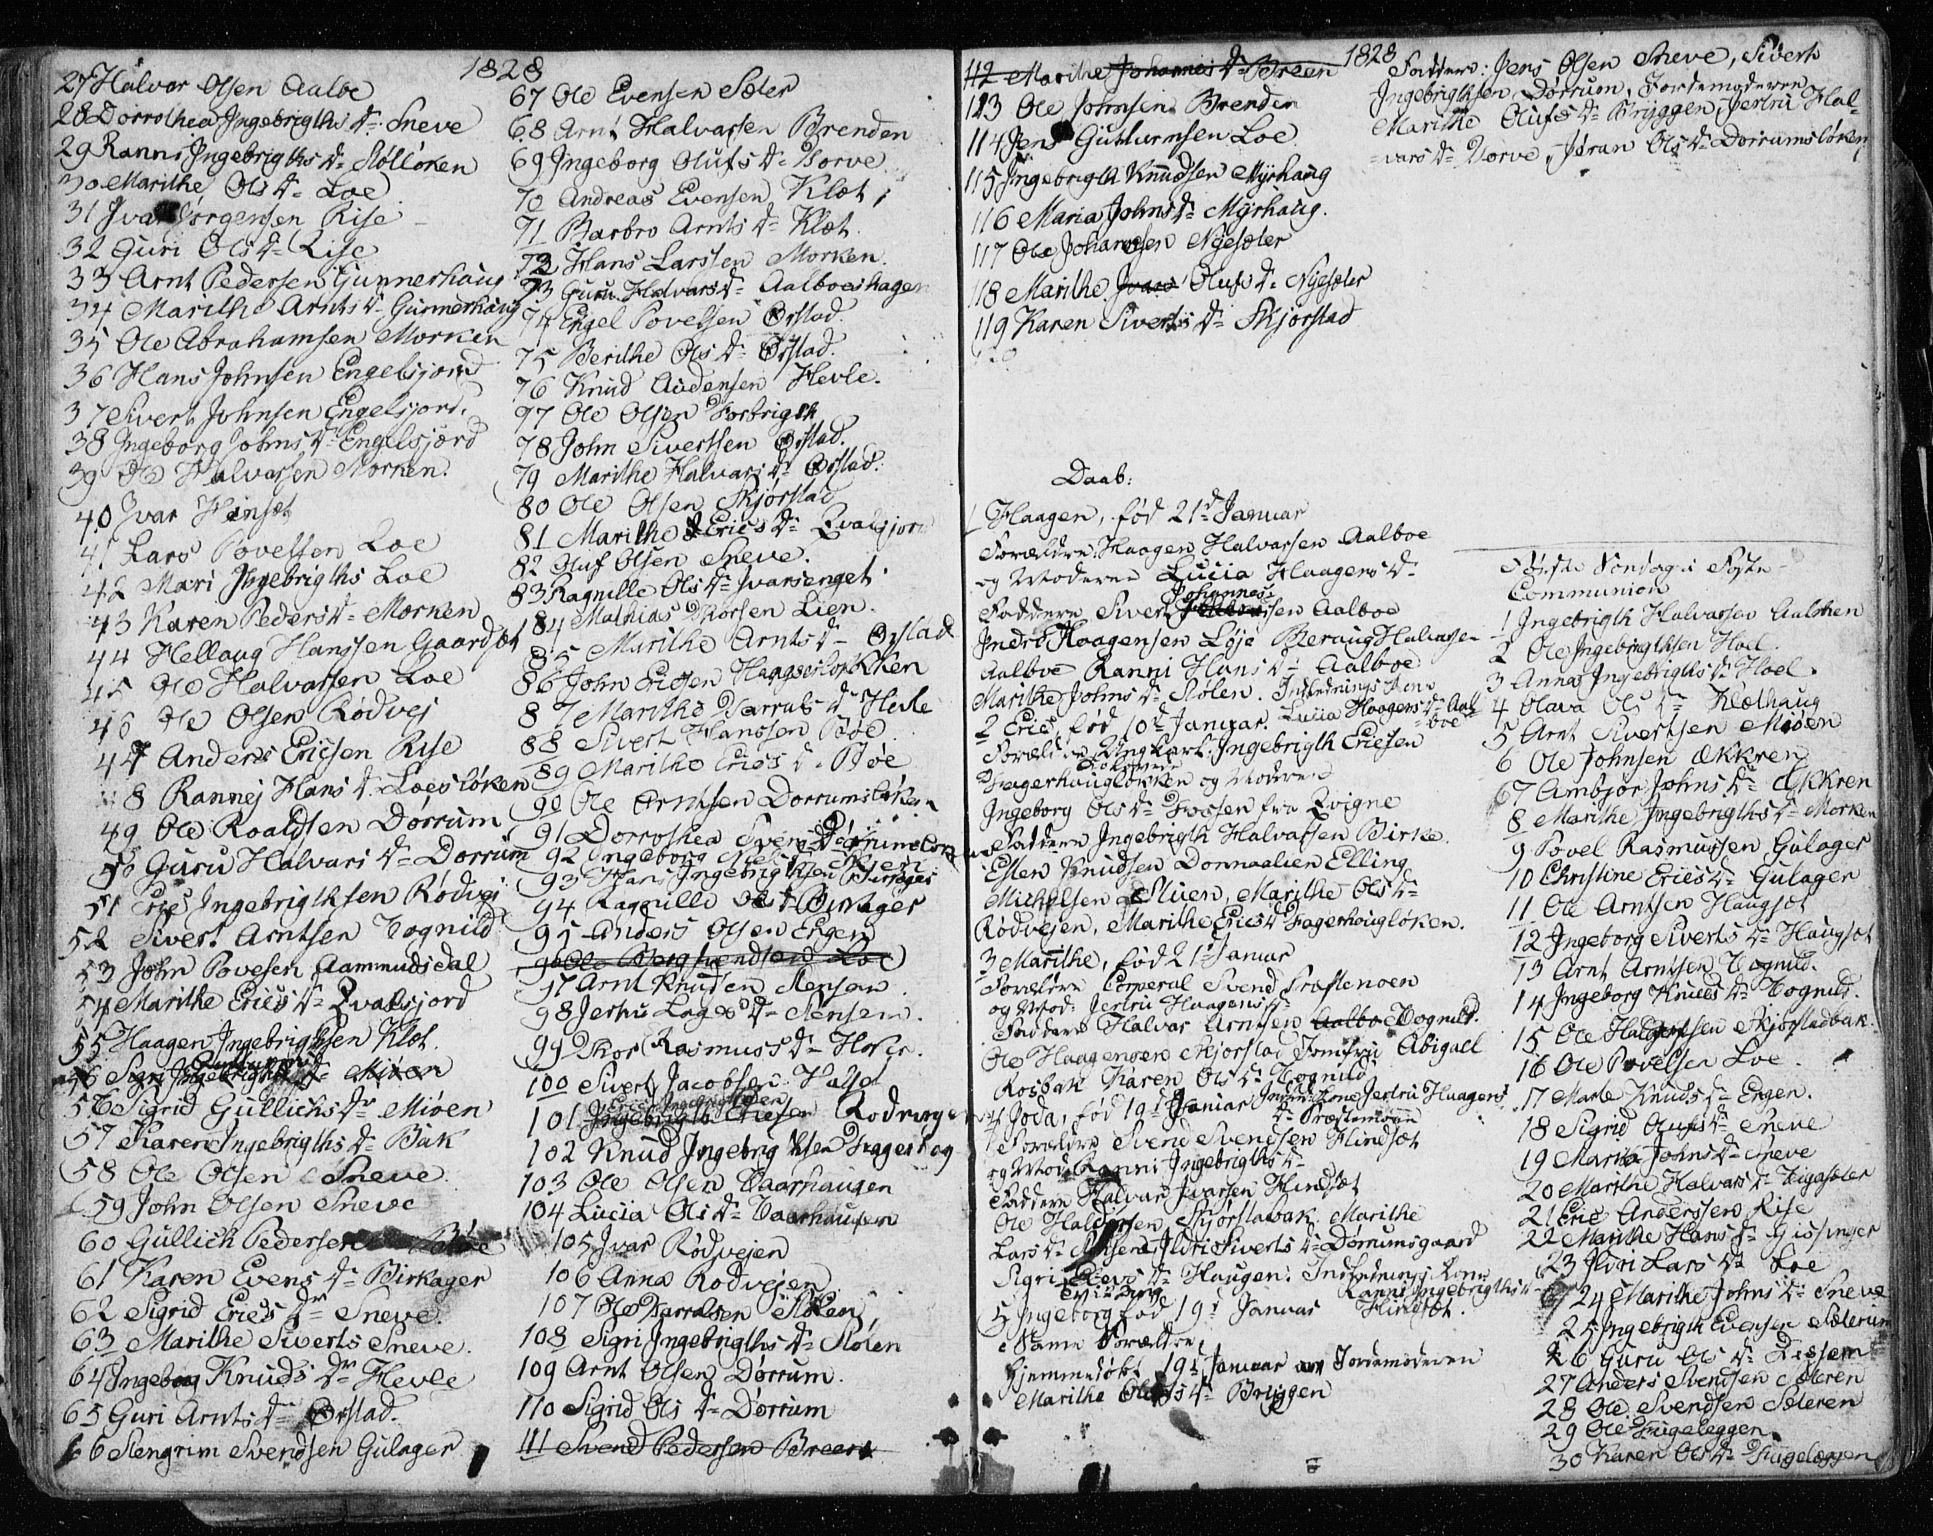 1828
27 Halvor Olsen Aalbo
28 Dorrothea Ingebrigths Dr Sneve
29 Ranni Ingebrigths Dr Stølløken
30 Marithe Ols Dr Loe
31 Ivar Jørgensen Rise
32 Guri Ols Dr Rise
33 Arnt Pedersen Gunnerhaug
34 Marithe Arnts Dr Gunnerhaug
35 Ole Abrahamsen Morken
36 Hans Johnsen Engelsjord
37 Sivert Johnsen Engelsjord.
38 Ingeborg Johns Dr Engelsjord
39 Ole Halvorsen Morken.
40 Ivar Hinset
41 Lars Povelsen Loe
42 Mari Ingebrigths Loe
43 Karen Peders Dr Morken
44 Hellaug Hanssen Gaardsøt
45 Ole Halvarsen Loe
46 Ole Olsen Rødvej
47 Anders Ericsen Rise
48 Rannej Hans Dr Loesløken
49 Ole Roaldsen Dørrum
50 Guru Halvars Dr Dørrum
51 Eric Ingebrigthsen Rødvej
52 Sivert Arntsen Tognild
53 John Povelsen Aammudsdal
54 Marithe Erics Dr Qvalsjord
55 Haagen Ingebrigthsen Klæt.
56 Sigri Dr Mioen
56 Sigrid Gullichs Dr Mioen
57 Karen Ingebrigths Dr Bak
58 Ole Olsen Sneve
59 John Olsen Sneve
60 Gullich Pedersen
61 Karen Evens Dr Birkager
62 Sigrid Erics Dr Sneve.
63 Marithe Siverts Sneve.
64 Ingeborg Knuds Dr Hevle
65 Guri Arnts Dr Ørstad.
66 Stengrim Svendsen Gulager
67 Ole Evensen Sæter
68 Arnt Halvarsen Brenden
69 Ingeborg Olufs Dr Vorve
70 Andreas Evensen Klæt
71 Barbro Arnts Dr Klæt.
72 Hans Larssen Morken.
73 Guru Halvars Dr Aalboeshagen
74 Engel Povelsen Ørstad.
75 Berithe Ols Dr Ørstad.
76 Knud Audensen Hevle.
97 Ole Olsen
78 John Sivertsen Ørstad.
79 Marithe Halvars Dr Ørstad.
80 Ole Olsen Skjørstad
81 Marithe Erics Dr Qvalsjord
82 Oluf Olsen Sneve.
83 Ragnille Ols Dr Ivarsenget
84 Mathias Thorsen Lien.
85 Marithe Arnts Dr Ørstad
86 John Ericsen
87 Marithe Dr Hevle
88 Sivert Hanssen Bøe
89 Marithe Erics Dr Bøe
90 Ole Arntsen Dørrumsløken
91 Dorrothea Svens Dr
92 Ingeborg
93 Hans Ingebrigthsen
94 Ragnille Ols Dr Birkager
95 Anders Olsen Engen
96 Ole Loe
97 Arnt Knudsen Stensen
98 Jertru Lages Dr Stensen.
99 Thor Rasmuss Dr Hofer.
100 Sivert Jacobsen
101 Ingebrigth Ericsen
102 Knud Ingebrigthsen
103 Ole Olsen Vaarhaugen
104 Lucia Ols Dr Vaarhaugen
105 Ivar Rødvejen
106 Anna Rødvejen
107 Ole Støen
108 Sigri Ingebrigths Dr Stølen
109 Arnt Olsen Dørrum.
110 Sigrid Ols Dr Dørrum
111 Svend Pedersen Breen
1828
112 Marithe Johannes Dr Breen
113 Ole Johnsen Brenden
114 Jens Gutturmsen Loe.
115 Ingebrigth Knudsen Myrhaug
116 Maria Johns Dr Myrhaug.
117 Ole Johansen Nyesæter
118 Marithe Ivars Olufs Dr Nyesæter
119 Karen Siverts Dr Skjørstad
120
Faddere: Jens Olsen Sneve, Sivert
Ingebrigthsen Dørrum, Jordemoderen
Marithe Olufs Dr Bryggen, Jertru Hal-
-vars Dr Vorve, Jøran Ols Dr Dørrumsløken
Daab:
1 Haagen, fød 21d Januar
Forældre: Haagen Halvarsen Aalboe
og Moderen Lucia Haagens Dr
Johannes
Faddere Sivert Aalboe
Indrd Haagensen Løje Beraug Halvarsen
Aalboe Ranni Hans Dr Aalboe
Marithe Johns Dr Stølen. Indledningskone
Lucia Haagens Dr Aal-
boe
2 Eric, fød 10d Januar.
Forældre Ungkarl Ingebrigth Ericsen
Fagerhaugløkken og Moderen
Ingeborg Ols Dr Fossen fra Qvigne
Faddere Ingebrigth Halvarsen Birke.
Esten Knudsen Donnaalien Elling
Michelsen Stuen, Marithe Ols Dr
Rødvejen, Marithe Erics Dr Fagerhaugløken.
3 Marithe, fød 21d Januar
Forældre Corperal Svend Præstemoen
og Mod. Jertru Haagens Dr
Faddere Halvar Arntsen Aalboe Tognild.
Ole Haagensen Skjørstad Jomfru Abigael
Rosbak Karen Ols Dr Tognild
Jertru Haagens
Dr Præstemoen
4 Joda, fød 19d Januar
Forældre Svend Svendsen Hindsæt
og Mod. Ranni Ingebrigths Dr
Faddere Halvar Ivarsen Hindsæt
Ole Haldorsen Skjørstabak Marithe
Lars Dr Ildri Siverts Dr Dørrumsgaard
Sigri Dr Haugen. Indledningskone
Ranni Ingebrigths Dr
Hindsæt.
Tvilling
5 Ingeborg fød 19d Januar
Same Forældre,
Hjemmedøbt 19d Januar av Jordemoderen
Marithe Olufs Dr Bryggen
Første Søndag i Faste
Communion
1 Ingebrigth Halvarsen Aalbken
2 Ole Ingebrigthsen Hoel
3 Anna Ingebrigths Dr Hoel.
4 Olava Ols Dr Klæthaug
5 Arnt Sivertsen Mioen
6 Ole Johnsen Ækkren
7 Ambjør Johns Dr Ækkren
8 Marithe Ingebrigths Dr Morken
9 Povel Rasmussen Gulager
10 Christine Erics Dr Gulager
11 Ole Arntsen Haugsæt
12 Ingeborg Siverts Dr Haugsæt
13 Arnt Arntsen Tognild.
14 Ingeborg Knuds Dr Tognild.
15 Ole Haldorsen Skjørstadbak.
16 Ole Povelsen Loe.
17 Marte Knuds Dr Engen.
18 Sigrid Olufs Dr Sneve
19 Maria Johns Dr Sneve
20 Marithe Halvars Dr
21 Eric Anderssen Rise
22 Marithe Hans Dr Gissinger
23 Ildri Lars Dr Loe
24 Marithe Johns Dr Sneve
25 Ingebrigth Evensen Sæteren
26 Guru Ols Dr
27 Anders Svendsen Sæteren
28 Ole Svendsen Sæteren
29 Ole Fugeleggen
30 Karen Ols Dr Fugeleggen